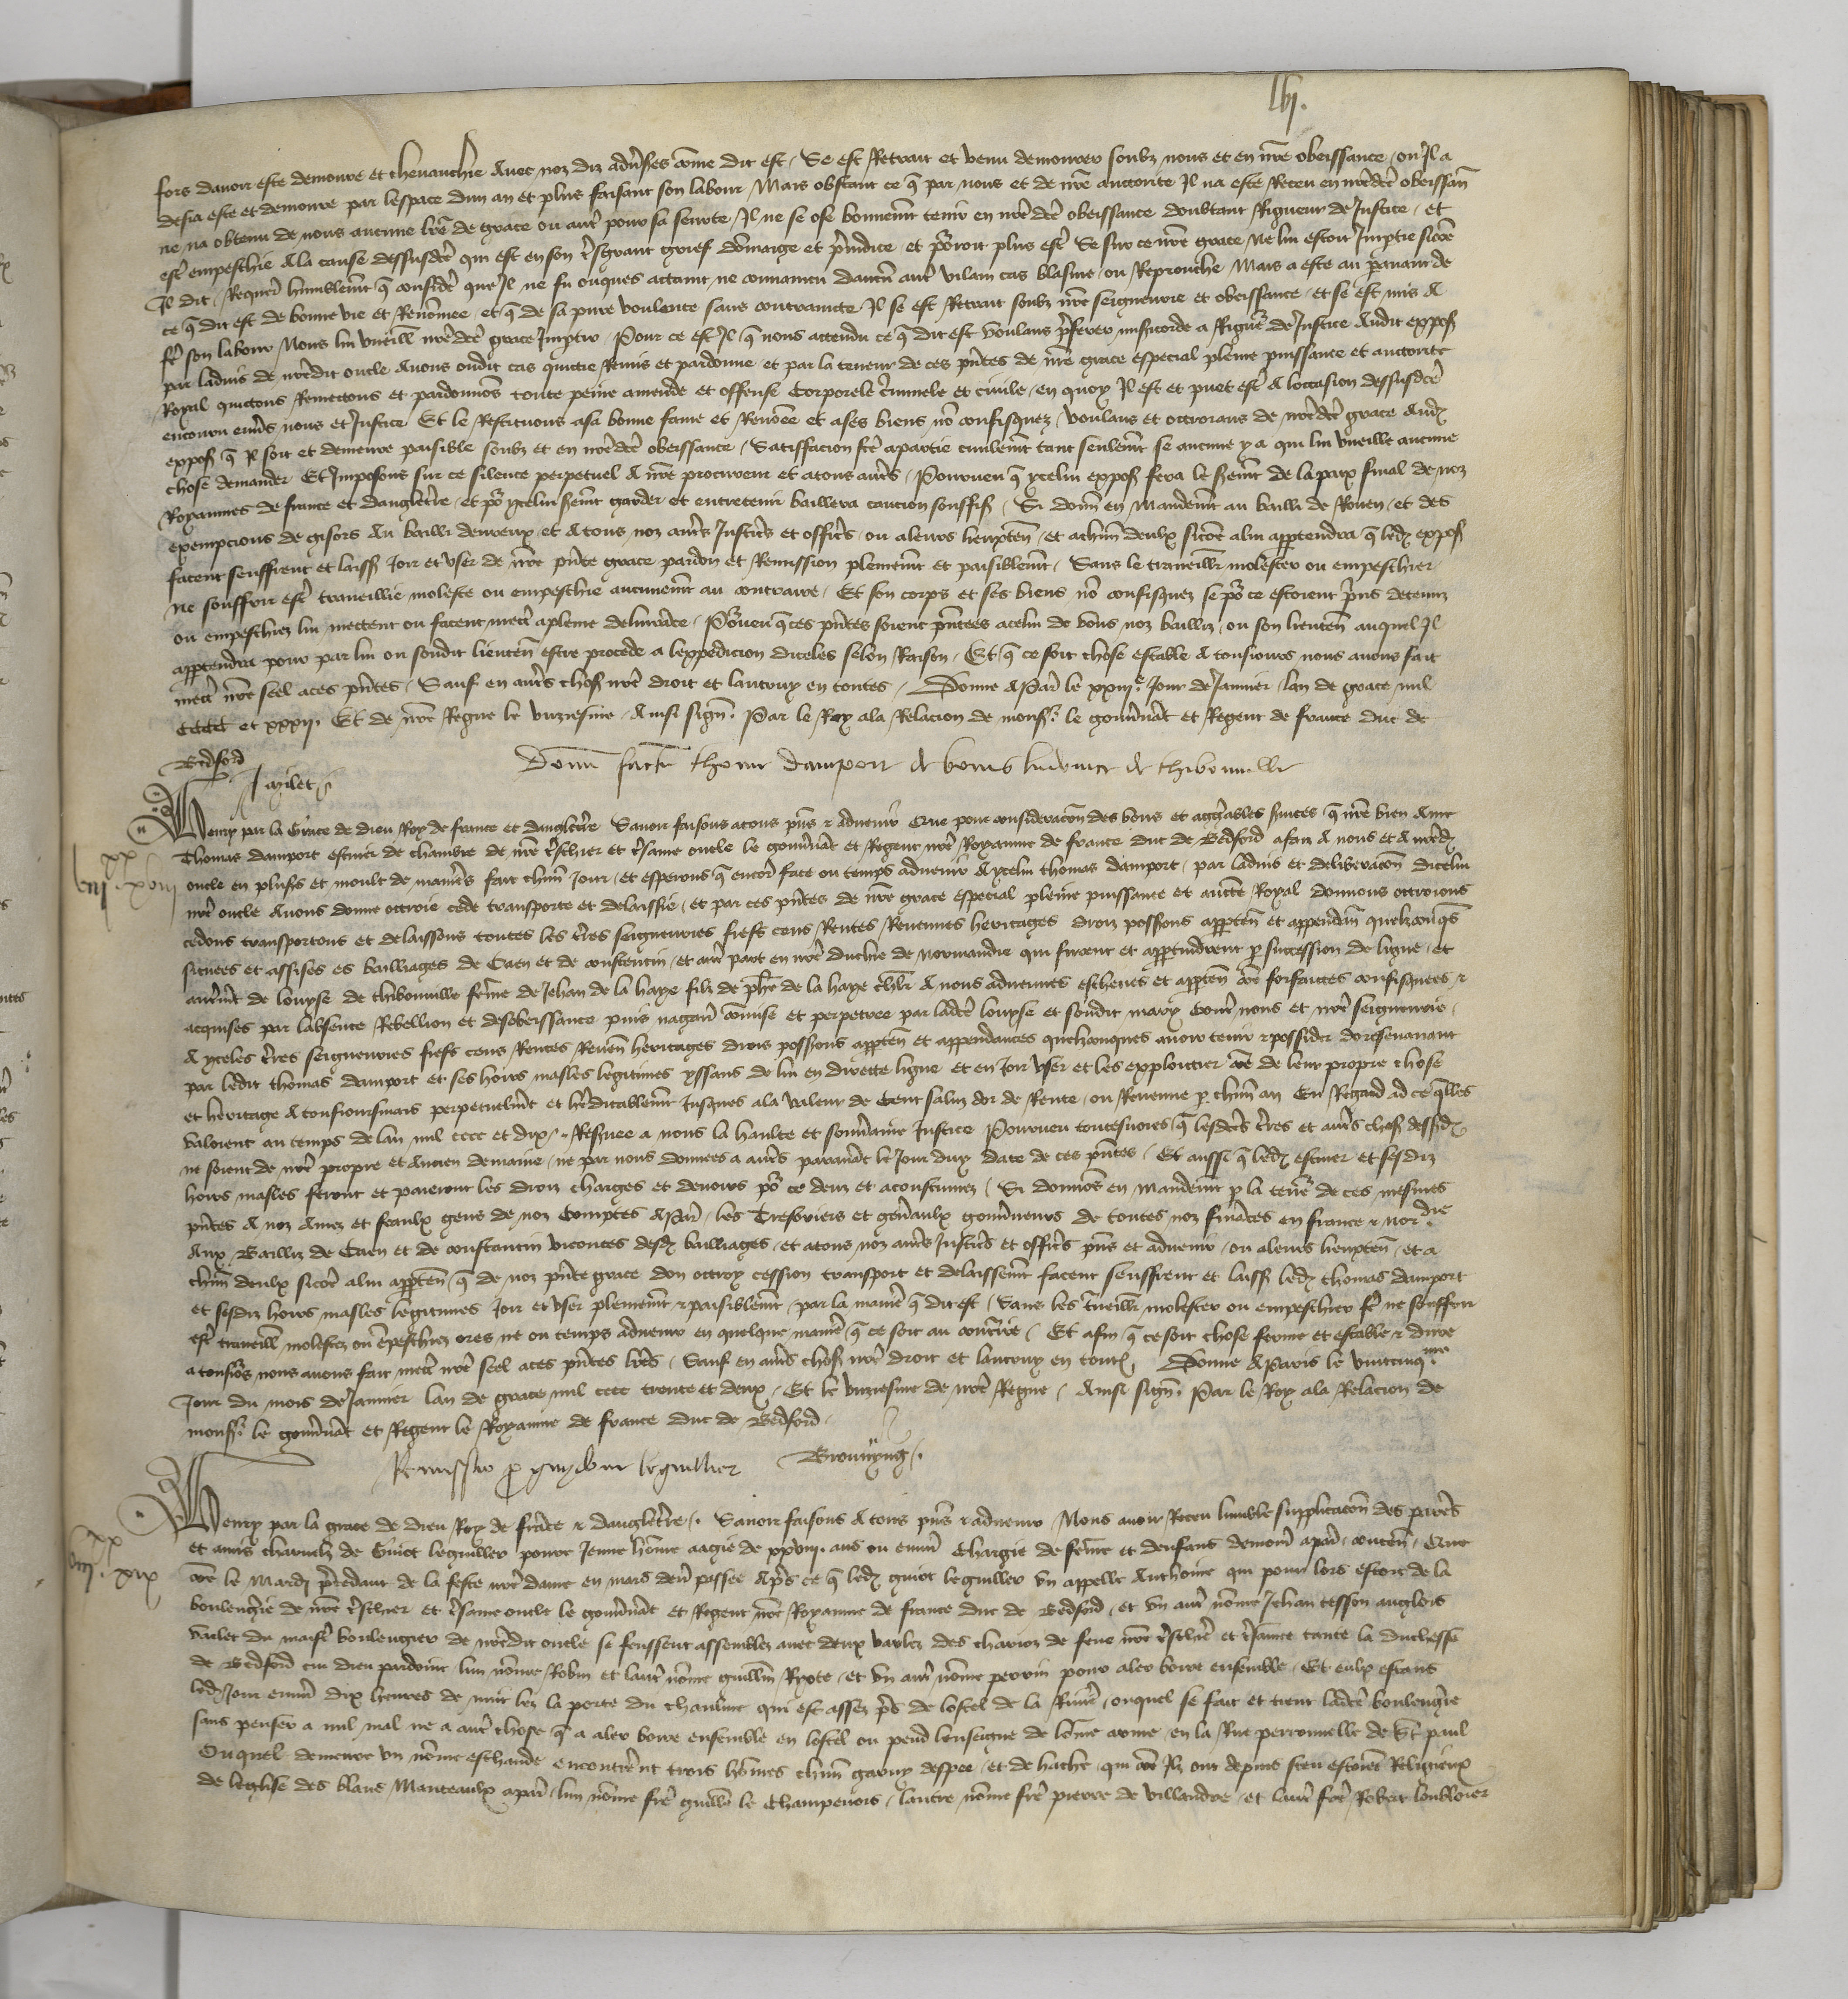 lvj.
fors davoir este demoure et chevauchie avec noz diz advses come dit est / Se est Retrait et venu demourer soubz nous et en nre obeissance / ou Il a
desia este et demoure par lespace dun an et plus faisant son labour / Mais obstant ce q par nous et de nre auctorite Il na este Receu en nredce obeissan
ne na obtenu de nous aucune lre de grace ou autr pour sa seurte / Il ne se ose bonnemt tenir en nre dce obeissance doubtant Rigueur de Justice / et
estr empeschie a la cause dessusdce qui est en son tsgrant grief domaige et pjudice / et pourroit plus estr se sur ce nre grace ne lui estoit Imptie sicoe
Il dit / Requert humblemt q consider que Il ne fu onques attaint ne convaincu daucun autr vilain cas blasme ou Reprouche Mais a este au paravant de
ce q dit est de bonne vie et Renomee / et q de sa pure voulente sans contrainte Il se est Retrait soubz nre seigneurie et obeissance / et se est mis a
fe son labour Nous lui vueill nredce grace Imptir / Pour ce est Il q nous attendu ce q dit est voulans pferer misicorde a Rigur de Justice Audit expos
par ladvis de nredit oncle Avons oudit cas quictie Remis et pardonne / et par la teneur de ces pntes de nre grace especial pleine puissance et auctorite
Royal quictons Remettons et pardonnos toute peine amende et offense Corporele cminele et civile / en quoy Il est et puet estr A loccasion dessusdce
encouru envs nous et Justice Et le Restituons a sa bonne fame et Renoee et a ses biens no confisquez / Voulans et octroians de nredce grace Aud
expos q Il soit et demeure paisible soubz et en nredce obeissance / Satisfacion fce a partie civilemt tant seulemt se aucune y a qui lui vueille aucune
chose demander Et Imposons sur ce silence perpetuel A nre procureur et a tous autrs / Pourveu q ycelui expos fera le sermt de la paix final de noz
Royaumes de france et dangleterre / et pour ycelui sermt garder et entretenir baillera caucion souffis / Si donn en Mandemt au bailli de Rouen / et des
exempcions de gisors Au bailli devreux / et A tous noz autrs Justics et offics / ou a leurs lieuxten / et a chun deulx sicoe a lui appartendra q led expos
facent seuffrent et laiss Joir et user de nre pnte grace pardon et Remission plemt et paisiblemt / Sans le traveillr molester ou empeschier
ne souffrir estr traveillie moleste ou empeschie aucunemt au contraire / Et son corps et ses biens no confisquez se pour ce estoient pris detenuz
ou empeschiez lui mettent ou facent mectr a pleine delivrace / Pourveu q ces pntes soient pntees a celui de vous noz bailliz / ou son lieuten auquel Il
appartendra pour par lui ou soudit lieuten estre procede a lexpedicion diceles selon Raison / Et q ce soit chose estable a tousiours nous avons fait
mectr nre seel a ces pntes / Sauf en autrs chos nre droit et lautruy en toutes / Donne A Par le xxiije Jour de Janvier / lan de grace mil
cccc et xxxij. Et de nre Regne le unziesme / Ainsi sign. Par le Roy a la Relacion de monsr le gouvnat et Regent de france duc de
Bedford
J milet
Donu factu thome damport de bonis ludovice de thibouville
Henry par la Grace de Dieu Roy de france et dangleterre Savoir faisons a tous pns & advenir Que pour consideracon des bons et aggreables svices q nre bien Ame
Thomas damport escuier de chambre de nre tschier et tsame oncle le gouvnat et Regent nre Royaume de france duc de Bedford a faiz A nous et A nred
iiijxx xviij
oncle en plusrs et moult de manieres fait chun Jour / et esperons q encor face ou temps advenir A ycelui thomas damport / par ladvis et deliberacon dicelui
nre oncle Avons donne octroie cede transporte et delaissie / et par ces pntes de nre grace especial pleine puissance et aucte Royal donnons octroions
cedons transportons et delaissons toutes les tres seigneuries fiefs cens Rentes Revenues heritages droiz possions apparten et appendan quelxconqs
situees et assises es bailliages de Caen et de constentin / et autr part en nre duchie de normandie qui furent et appartindrent p succession de ligne / et
autrmt de loyse de thibouville feme de Jehan de la haye filz de phe de la haye chlr A nous advenues escheues et apparten coe forfaictes confisquees &
acquises par labsence Rebellion et desobeissance puis nagaires comise et perpetree par ladce loyse et soudit mary contr nous et nre seigneurie /
A yceles tres seigneuries fiefs cens Rentes Reven heritages drois possions apparten et appendances quelxconques avoir tenir & possider doresenavant
par ledit thomas damport et ses hoirs masles legitimes yssans de lui en directe ligne et en Joir user et les exploictier coe de leur propre chose
et heritage A tousiourmais perpetuelmt et hereditablemt Jusques a la valeur de Cent salus dor de Rente / ou Revenue p chun an En Regard ad ce qlles
valoient au temps de lan mil cccc et dix / Resvee a nous la haulte et souvaine Justice Pourveu toutesvoies q lesdces tres et autrs chos dessd
ne soient de nre propre et Ancien demaine / ne par nous donnees a autrs paravat le Jour duy Date de ces pntes / Et aussi q led escuier et sesdiz
hoirs masles feront et paieront les droiz charges et devoirs pour ce deuz et acoustumez / Si donnos en mandemt p la teneur de ces mesmes
pntes A noz Amez et feaulx gens de noz Comptes A Par / les Tresoriers et genaulx gouvneurs de toutes noz finaces en france & nordie
Aux Bailliz de Caen et de constantin vicontes desd bailliages / et a tous noz autrs Justics et offics pns et advenir / ou a leurs lieuxten / et a
chun deulx sicoe a lui apparten q de noz pnte grace don octroy cession transport et delaissemt facent seuffrent et laiss led thomas damport
et sesdiz hoirs masles legitimes Joir et user plemt & paisiblemt / par la manie q dit est / Sans les traveillr molester ou empeschier fe ne souffrir
estr traveill molestez ou epeschiez ores ne ou temps advenir en quelque manie q ce soit au contraire / Et afin q ce soit chose ferme et estable & dure
a tousiours nous avons fait mectr nre seel a ces pntes lres / Sauf en autrs chos nre droit et lautruy en tout / Donne A Paris le vintcinqme
Jour du mois de Janvier lan de grace mil cccc trente et deux / Et le unziesme de nre Regne / Ainsi sign. Par le Roy a la Relacion de
monsr le gouvnat et Regent le Royaume de france duc de Bedford
Browning
Remissio p guidone leguillier
Henry par la grace de dieu Roy de frace & dangleterre /. Savoir faisons A tous pns & advenir Nous avoir Receu humble supplicacon des parens
et amis charnelz de Guiot leguillier povre Jeune home aagie de xxviij. ans ou environ Chargie de feme et denfans demour a par / conten / Que
iiijxx xix
coe le Mardi precedant de la feste nre dame en mars derr passee Aprs ce q led guiot leguillier un appelle Anthoine qui pour lors estoit de la
boulengerie de nre tschier et tsame oncle le gouvnat et Regent nre Royaume de france duc de Bedford / et un autr nome Jehan tesson anglois
varlet du maistr boulengier de nredit oncle se feussent assemblez avec deux varlez des charioz de feue nre tschie et tsamee tante la duchesse
de Bedford cui dieu pardoint lun nome Robin et lautr nome guillm Ryote / et un autr nome perrin pour aler boire ensemble / Et eulx estans
led Jour environ dix heures de nuit lez la porte du chaulme qui est assez prs de lostel de la Rivie / ouquel se fait et tient ladce boulengerie
sans penser a nul mal ne a autr chose q a aler boire ensemble en lostel ou pend lenseigne de lome arme / en la Rue perronnelle de st paul
Ouquel demeure un nome eschaude encontrrent trois homes chun garny despee / et de hache / qui coe Ilz ont depuis sceu estoient Religieux
de leglise des blans Manteaulx a par / lun nome fre guille le Champenois / lautre nome fre pierre de villandre / et lautr fre Robert